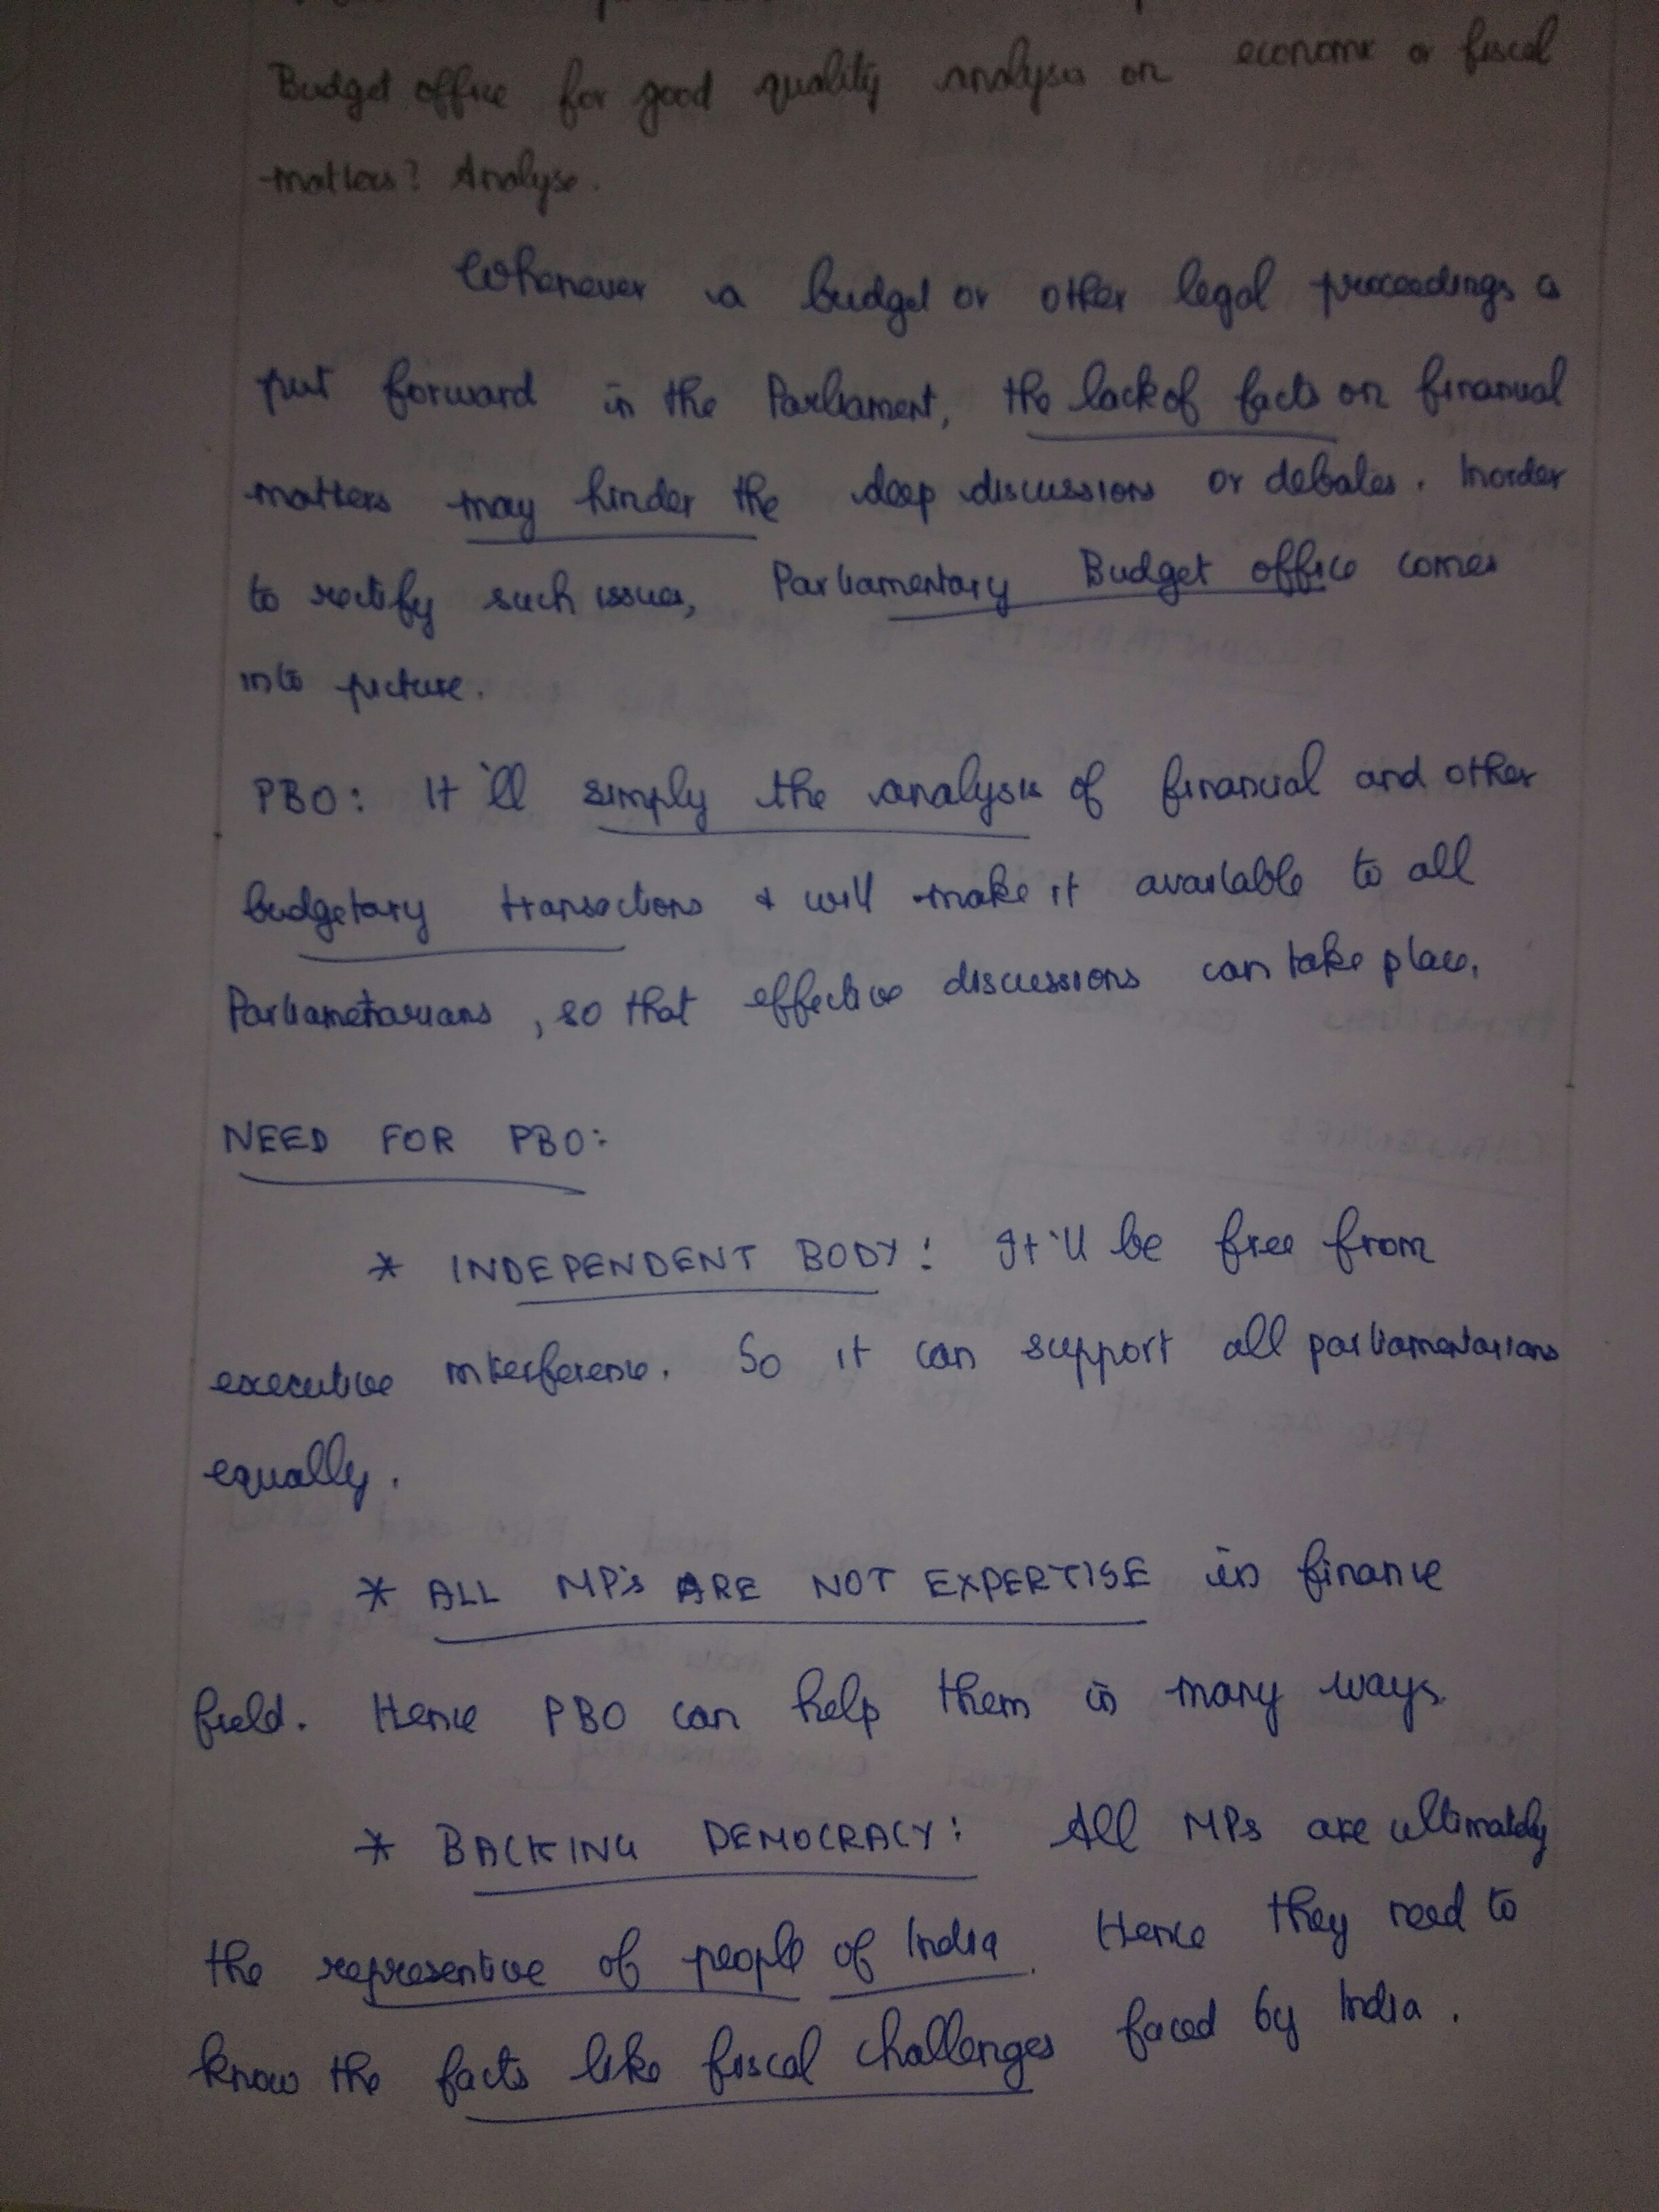 Budget office for good quality analysis on economic or fiscal
matters? Analyse.
Whenever a budget or other legal proceedings is
put forward in the Parliament, the lack of facts on financial
matters may hinder the deep discussions or debates. Inorder
to rectify such issues, Parliamentary Budget office comes
into picture.
PBO: It'll simply the analysis of financial and other
budgetary transactions & will make it available to all
Parliametarians, so that effective discussions can take place.
NEED FOR PBO:
* INDEPENDENT BODY: It'll be free from
executive interference. So it can support all parliamentarians
equally.
* ALL MP's ARE NOT EXPERTISE in finance
field. Hence PBO can help them in many ways.
* BACKING DEMOCRACY: All MPs are ultimately
the representive of people of India. Hence they need to
know the facts like fiscal challenges faced by India.